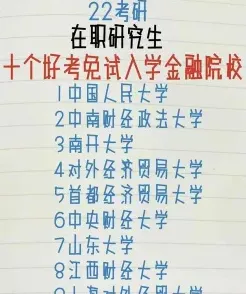 22考研
在职研究生
十个好考免试入学金融院校
1中国人民大学
2中南财经政法大学
3南开大学
4对外经济贸易大学
5首都经济贸易大学
6中央财经大学
7山东大学
8江西财经大学